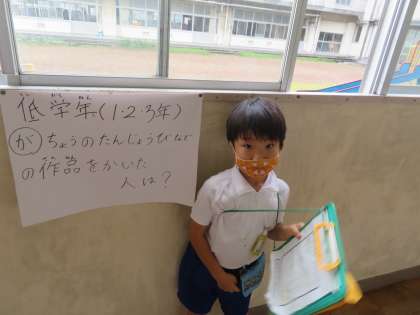 低学年(1・2・3年)
が ちょうのたんじょうびなど
の作品をかいた
人は?